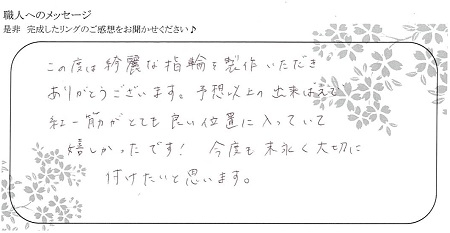 職人へのメッセージ
是非 完成したリングのご感想をお聞かせください♪
この度は綺麗な指輪を製作いただき
ありがとうございます。予想以上の出来ばえで
紅一筋がとても良い位置に入っていて
嬉しかったです! 今度も末永く大切に
付けたいと思います。